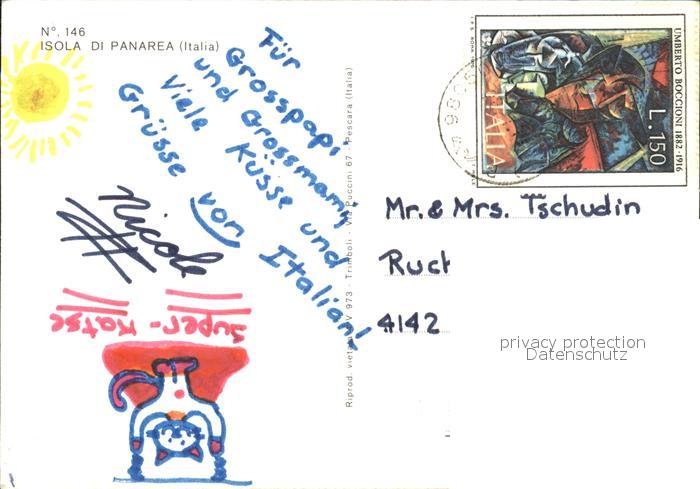 N°. 146
ISOLA DI PANAREA (Italia)
Für
Grosspapi
und Grossmamy
Viele Küsse und
Grüsse von Italian!
Nicole
Super-Katze
Riprod. vietata V 973 - Trimboli - Via Puccini 67 - Pescara (Italia)
UMBERTO BOCCIONI 1882-1916
ITALIA
L.150
Mr. & Mrs. Tschudin
Ruch
4142
privacy protection
Datenschutz